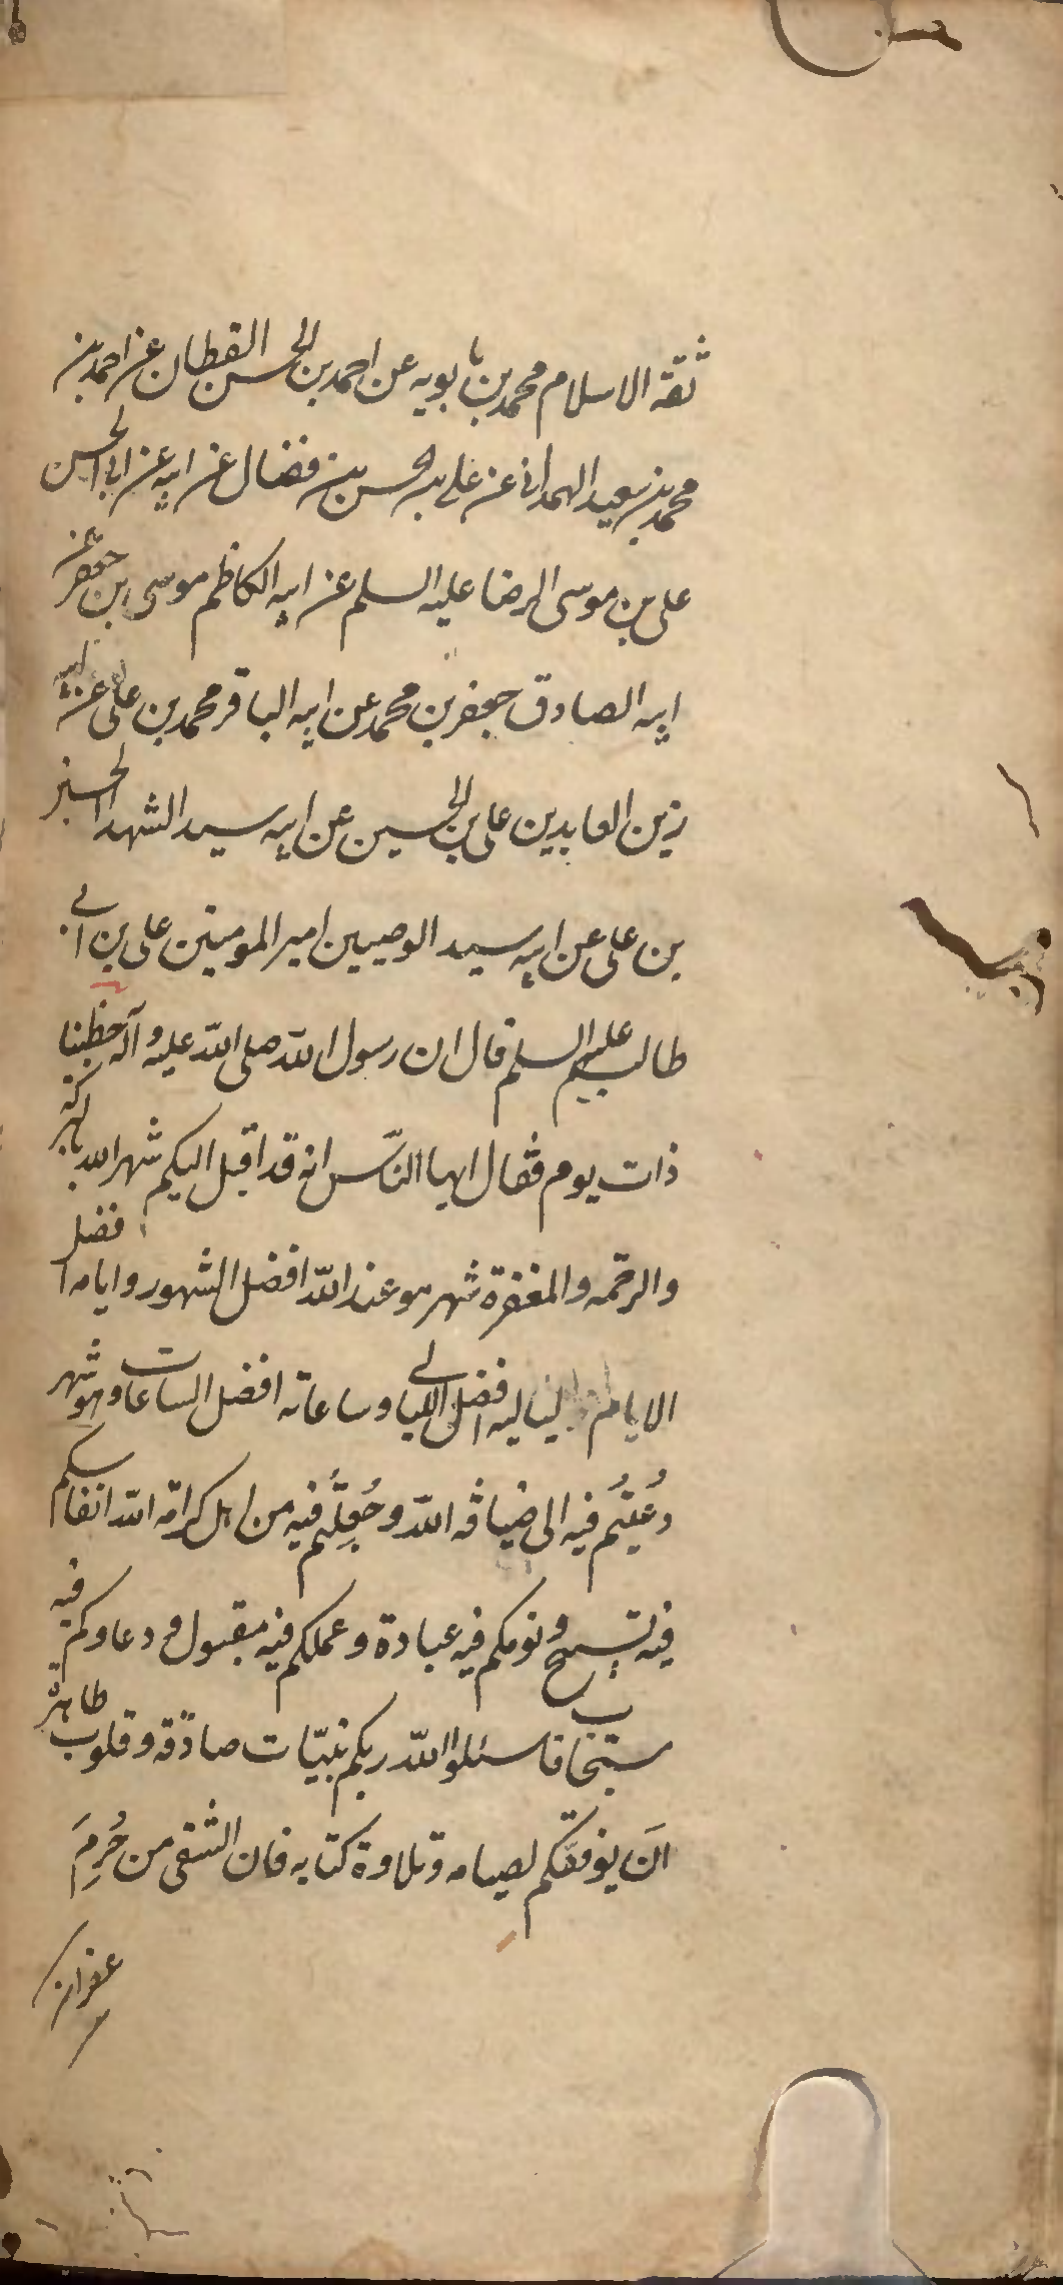 ثقة الاسلام محمد بن بابويه عن احمد بن الحسن القطان عن احمد بن
محمد بن سعيد الهمداني عن علي بن الحسن بن فضال عن ابيه عن ابي الحسن
علي بن موسى الرضا عليه السلم عن ابيه الكاظم موسى بن جعفر عن
ابيه الصادق جعفر بن محمد عن ابيه الباقر محمد بن علي عن ابيه
زين العابدين علي بن الحسين عن ابيه سيد الشهدا الحسين
بن علي عن ابيه سيد الوصيين امير المومنين علي بن ابي
طالب عليهم السلم قال ان رسول الله صلى الله عليه وآله خطبنا
ذات يوم فقال ايها النّاس انه قد اقبل اليكم شهر الله بالبركة
والرحمه والمغفرة شهر هو عند الله افضل الشهور وايامه افضل
الايام و لياليه افضل الليالي وساعاته افضل الساعات وهو شهر
دُعيتُم فيه الى ضيافه الله وجُعِلتُم فيه من اهل كرامه الله انفاسكم
فيه تسبيح ونومكم فيه عبادة وعملكم فيه مقبول ودعاوكم فيه
مستجاب فاسئلوا الله ربكم بنيّات صادقه وقلوب طاهرة
انَ يوفقكم لصيامه وتلاوة كتابه فان الشقى من حُرِمَ
غفران